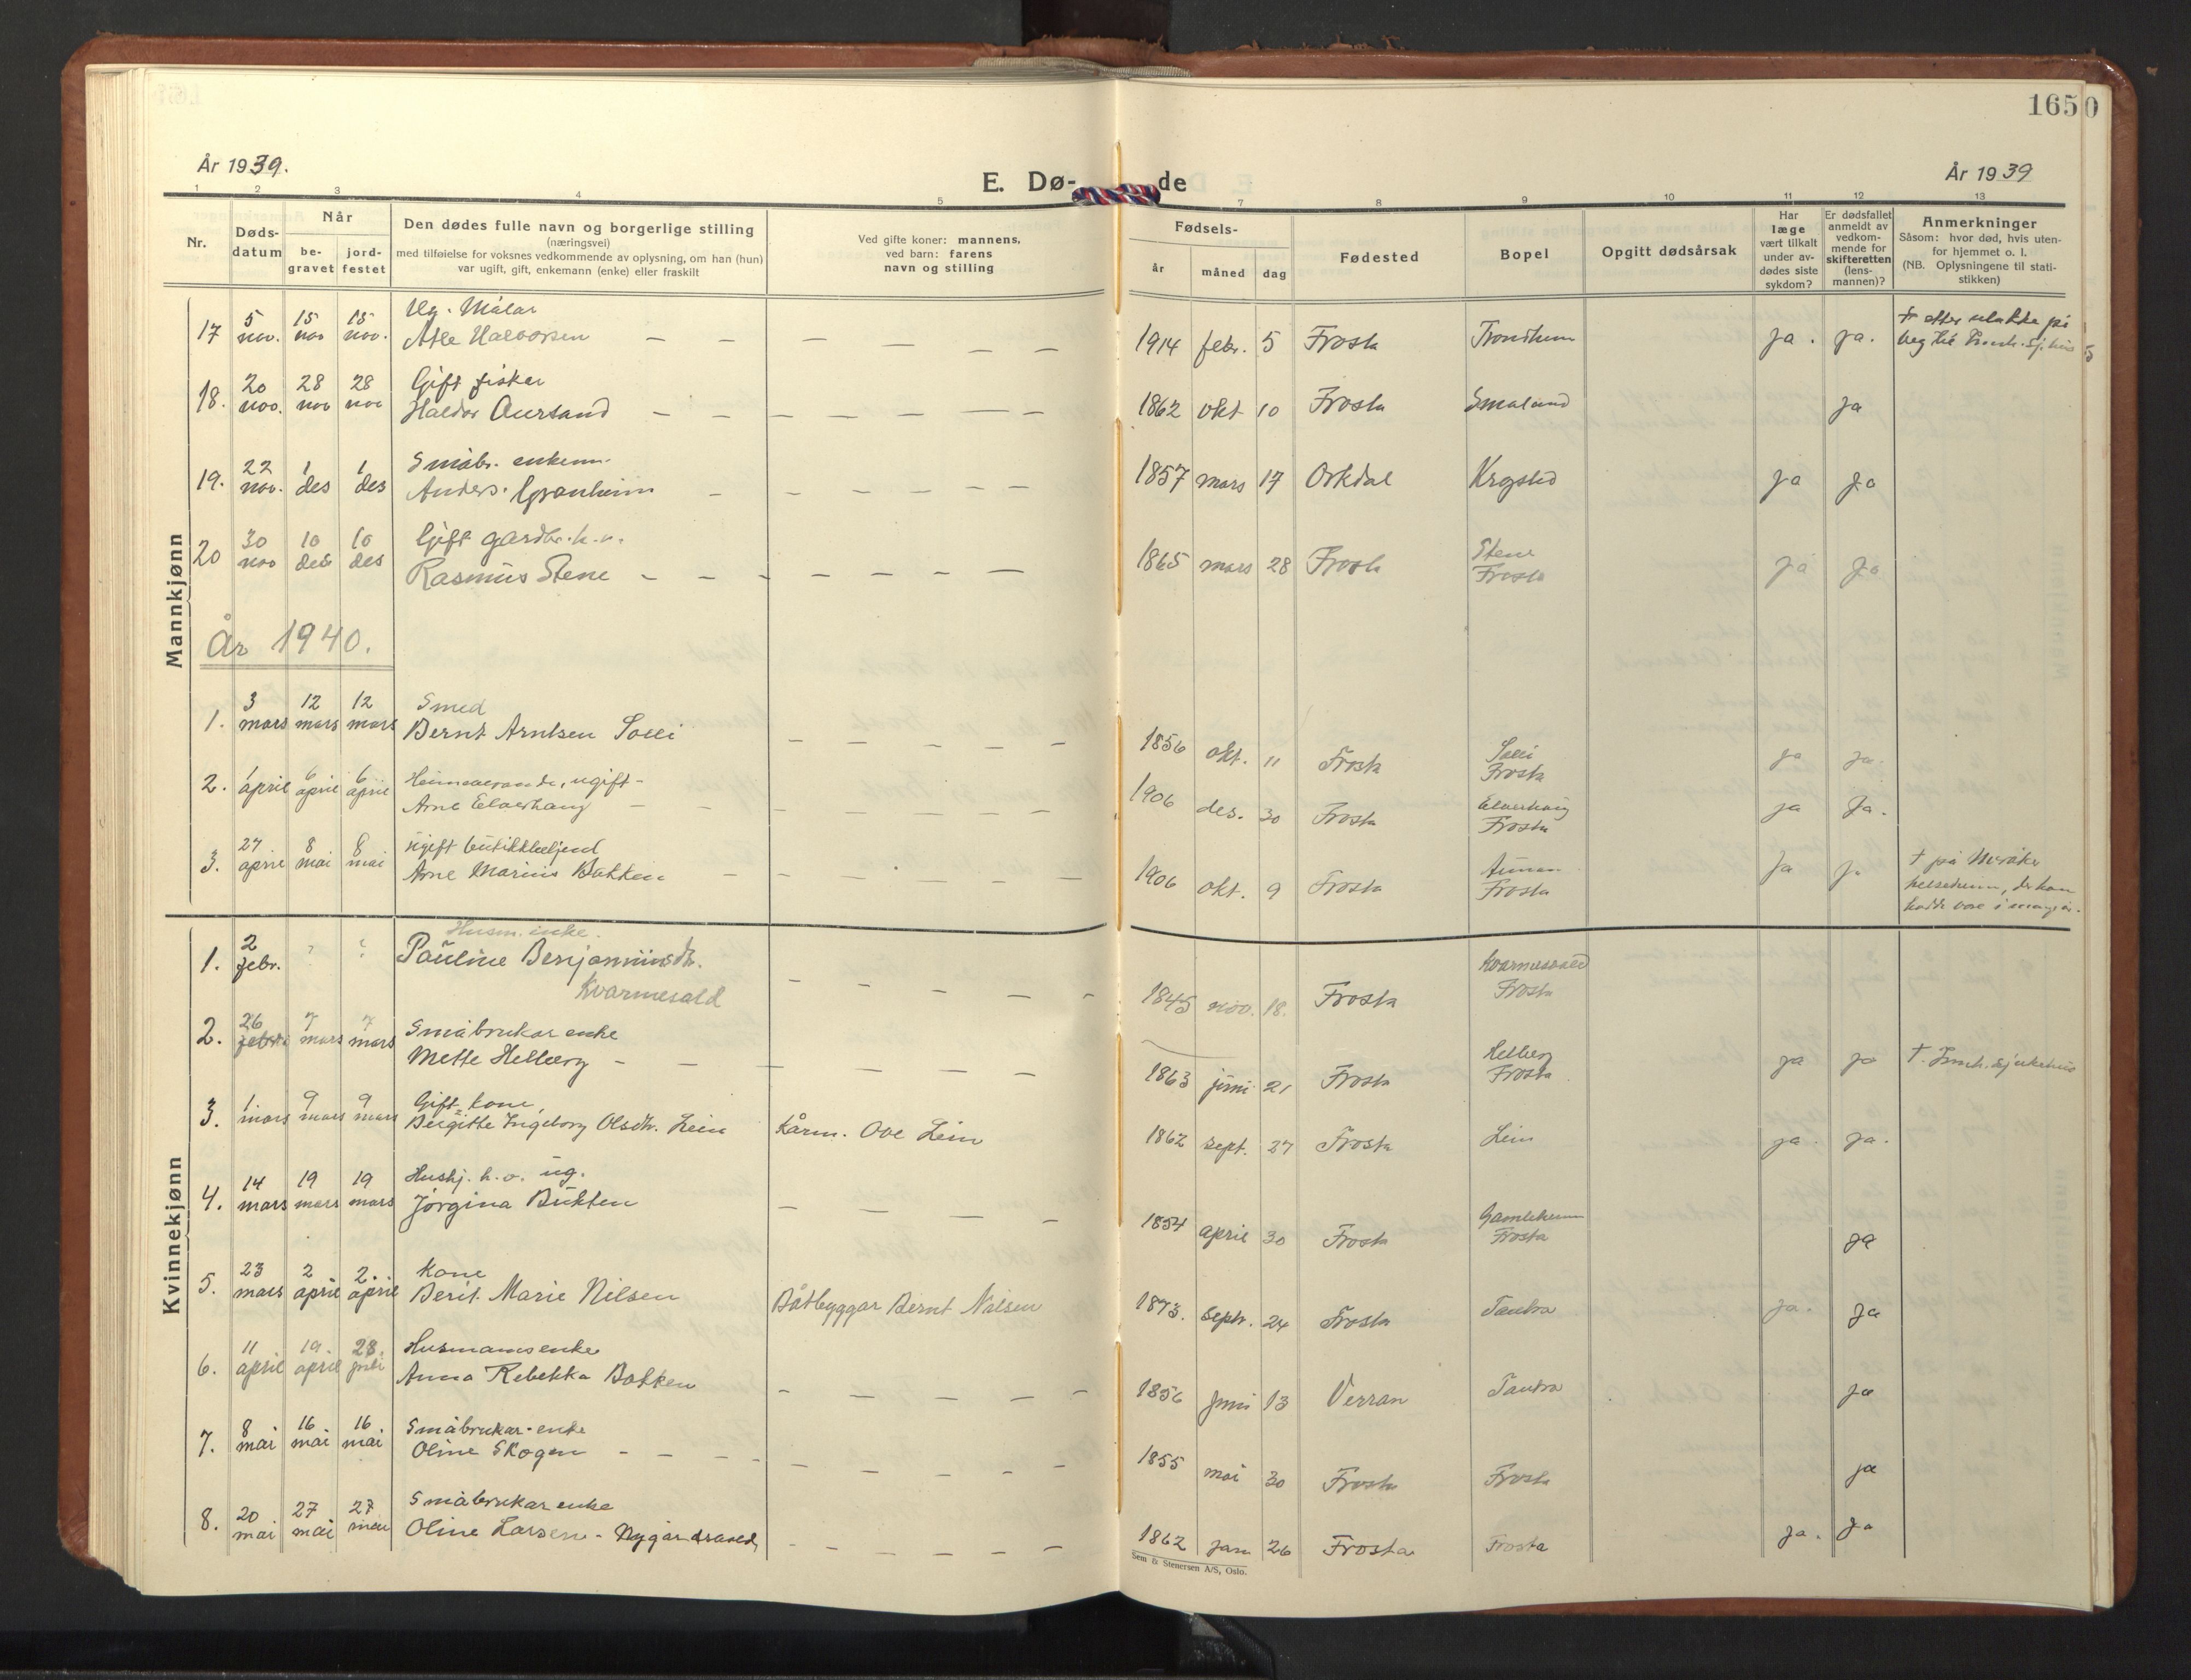 1650
År 1939.
E. Dø-
de
År 1939
1 2 3 4 5 7 8 9 10 11 12 13
Nr.
Døds-
datum
Når
be-
gravet
jord-
festet
Den dødes fulle navn og borgerlige stilling
(næringsvei)
med tilføielse for voksnes vedkommende av oplysning, om han (hun)
var ugift, gift, enkemann (enke) eller fraskilt
Ved gifte koner: mannens,
ved barn: farens
navn og stilling
Fødsels-
år
måned
dag
Fødested
Bopel
Opgitt dødsårsak
Har
læge
vært tilkalt
under av-
dødes siste
sykdom?
Er dødsfallet
anmeldt av
vedkom-
mende for
skifteretten
(lens-
mannen)?
Anmerkninger
Såsom: hvor død, hvis uten-
for hjemmet o. l.
(NB. Oplysningene til stati-
stikken)
Mannkjønn
5 15 15 Ug. Målar
17 nov. nov nov. Atle Halvorsen — — — — — — — 1914 febr. 5 Frosta Trondheim ja. ja. † etter ulukke på
veg til
20 28 28 Gift fisker
18. nov. nov nov Haldor Aursand — — — — — — — 1862 okt 10 Frosta Småland ja
22 1 1 Småbr. enkem.
19. nov. des des Anders Granheim — — — — — — 1857 mars 17 Orkdal Krogstad ja ja
30 10 10 Gift gardbr. k.v. Stene
20 nov des des Rasmus Stene — — — — — — — 1865 mars 28 Frosta Frosta ja ja
År 1940.
3 12 12 Smed
1. mars mars mars Bernt Arntsen Solli — — — — — 1856 okt. 11 Frosta Solli
Frosta ja ja.
1 6 6 Heimeverande, ugift
2. april april april Arne Elverhaug — — — — — — — 1906 des. 30 Frosta Elverhaug
Frosta ja ja.
27 8 8 Ugift
3. april mai mai Arne Marius Bakken — — — — — — 1906 okt. 9 Frosta Aunan
Frosta ja ja † på Meråker
helseheim, der han
hadde vore i mange år.
Kvinnekjønn
2 Husm. enke.
1. febr. ? ? Pauline Benjaminsdtr.
Kvarmesvald — — — — — 1845 nov. 18. Frosta Kvarmesvald
Frosta
26 7 7 Småbrukar enke
2. febr. mars mars Mette Helberg — — — — — — 1863 juni 21 Frosta Helberg
Frosta ja ja † Innh. sjukehus
1 9 9 Gift kone
3. mars mars mars Birgitte Ingeborg Olsdtr. Lein Kårm. Ove Lein 1862 sept. 27 Frosta Lein ja. ja.
14 19 19 Hushj. h.v. ug.
4. mars mars mars Jørgina Bukten — — — — 1854 april 30 Frosta Gamleheimen
Frosta ja
23 2 2. Kone
5. mars april april Berit Marie Nilsen Båtbyggar Bernt Nilsen 1873. septr. 24 Frosta Tautra ja. ja
11 19. 28. Husmannsenke
6. april april juli Anna Rebekka Bakken — — — — — 1856 juni 13 Verran Tautra ja
8 16 16 Småbrukar-enke
7. mai mai mai Oline Skogen — — — — — — — 1855 mai 30 Frosta Frosta ja
20 27 27 Småbrukar enke
8. mai mai mai Oline Larsen - Nygårdsvald — — — — — 1862 jan 26 Frosta Frosta ja. ja
Sem & Stenersen A/S, Oslo.